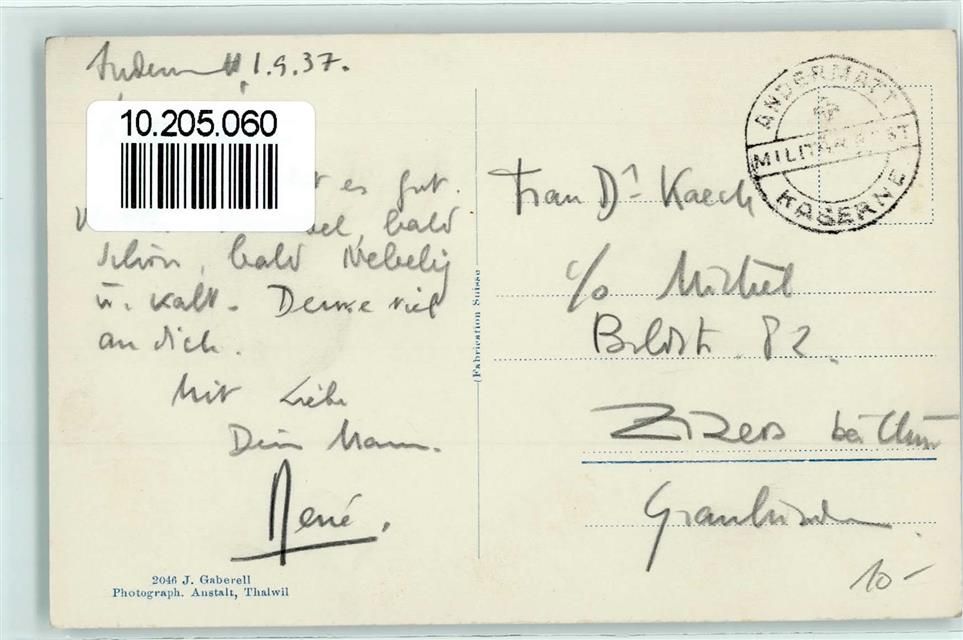 Anderm tt 1.9.37.
10.205.060
t es gut.
bald
schön, bald Nebelig
u. kalt. Denke viel
an dich.
Mit Liebe
Dein Mann.
René.
2046 J. Gaberell
Photograph. Anstalt, Thalwil
(Fabrication Suisse
ANDERMATT
MILITÄRPOST
KASERNE
Frau Dr Kaech
c/o Michel
82.
Zizers bei Chur
Graubünden
10-